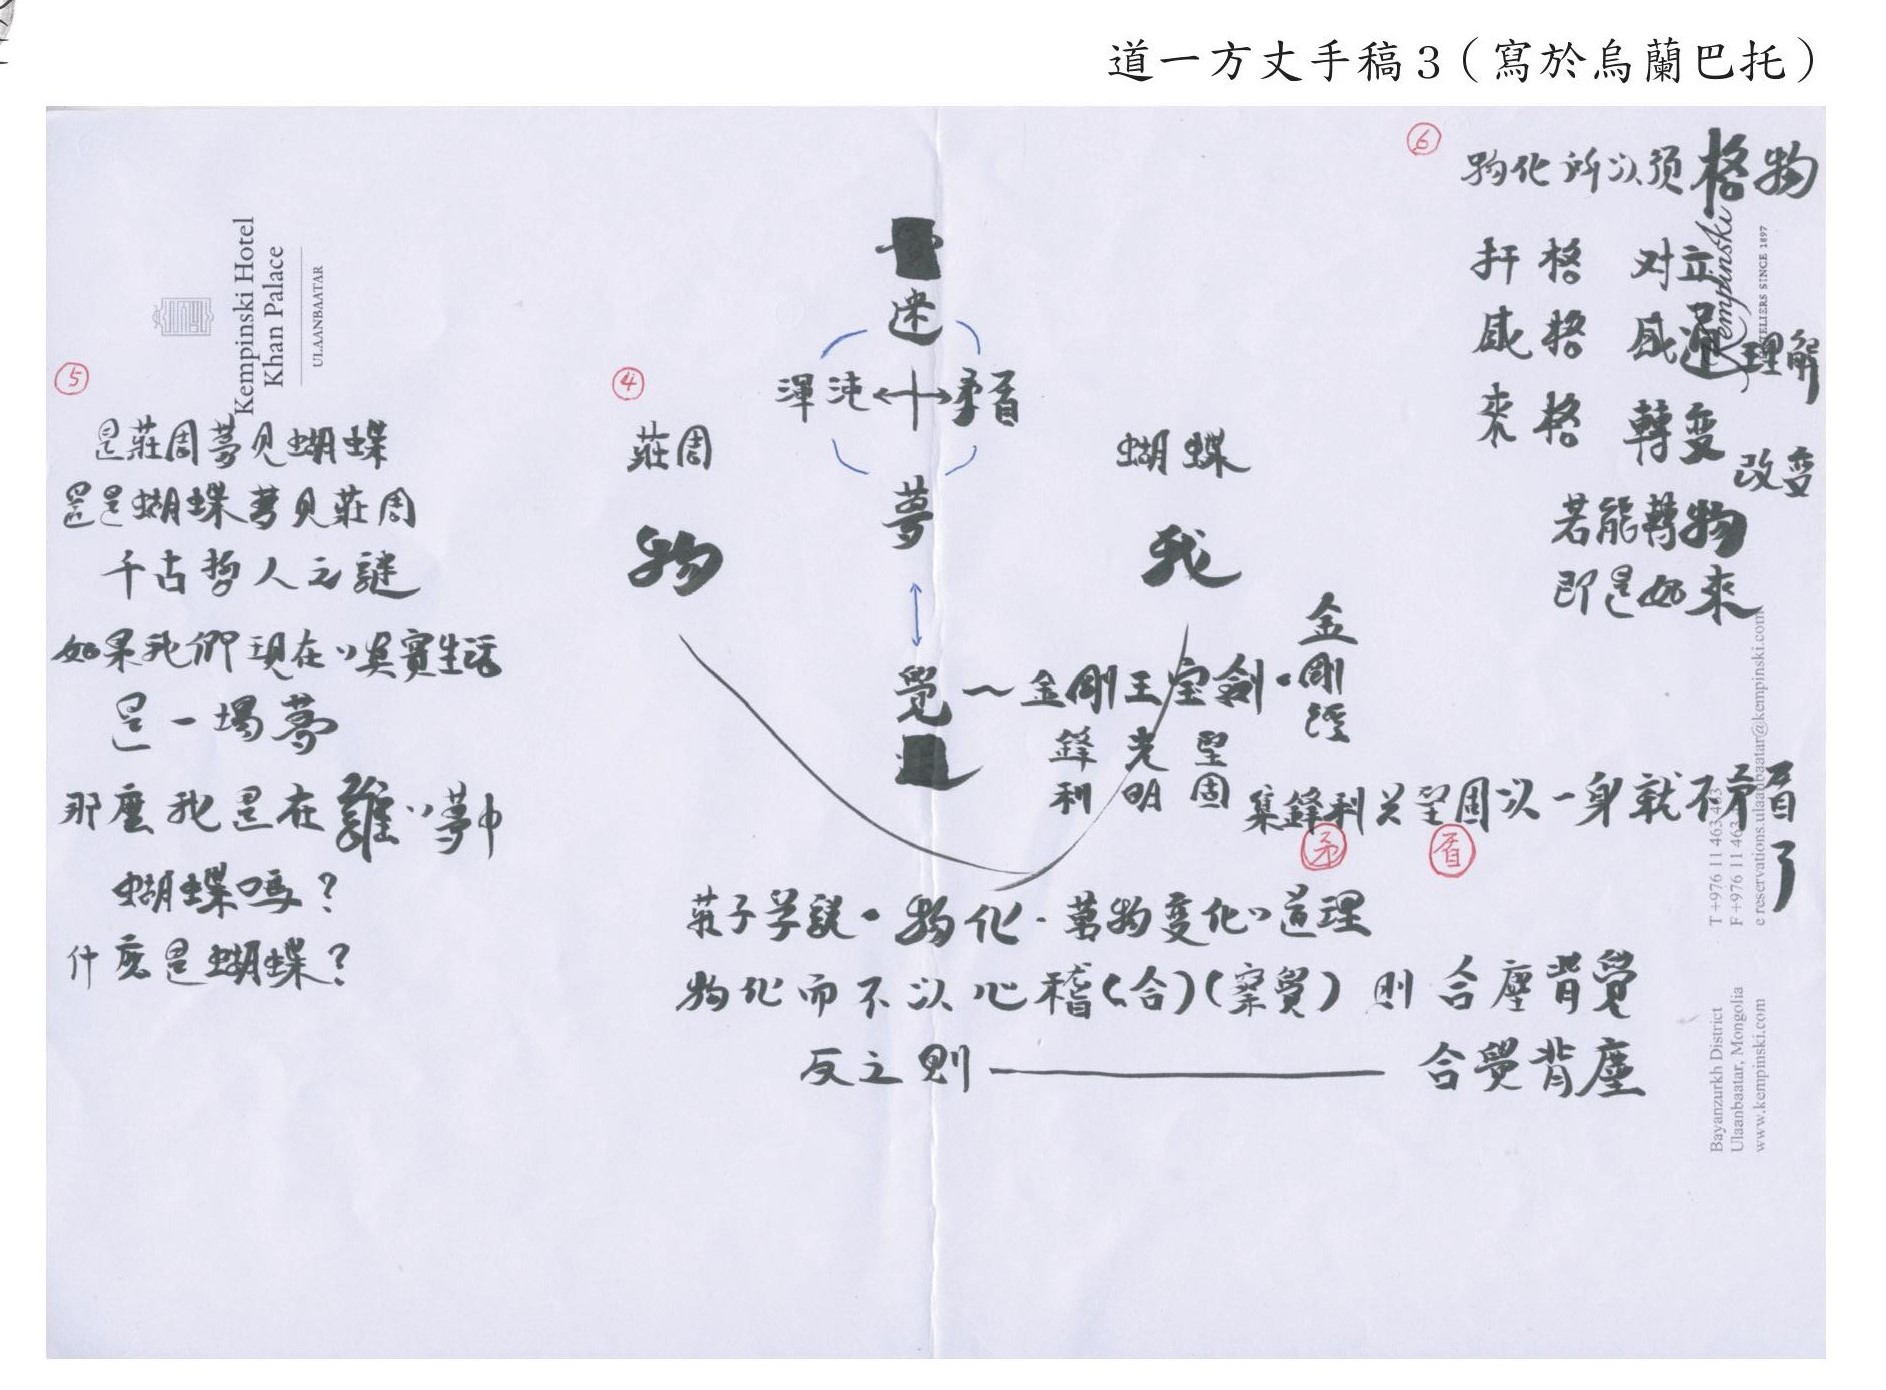 道一方丈手稿3（寫於烏蘭巴托）
Kempinski Hotel
Khan Palace
ULAANBAATAR
④
迷
渾沌 矛盾
莊周 蝴蝶
夢
物 我
覺～金剛王宝劍・金剛經
鋒利 光明 堅固
集鋒利与堅固以一身就不矛盾了
矛 盾
莊子学説・物化・萬物变化以道理
物化而不以心稽(合)(察覺)則合塵背覺
反之則——合覺背塵
⑤
是莊周夢見蝴蝶
還是蝴蝶夢見莊周
千古哲人之謎
如果我們現在以真實生活
是一場夢
那麼我是在誰以夢中
蝴蝶嗎？
什麼是蝴蝶？
⑥
物化所以须格物
扞格 对立
感格 感通 理解
來格 轉变 改变
若能轉物
即是如來
Kempinski
HOTELIERS SINCE 1897
Bayanzurkh District
Ulaanbaatar, Mongolia
www.kempinski.com
T +976 11 463 463
F +976 11 463
e reservations.ulaanbaatar@kempinski.com